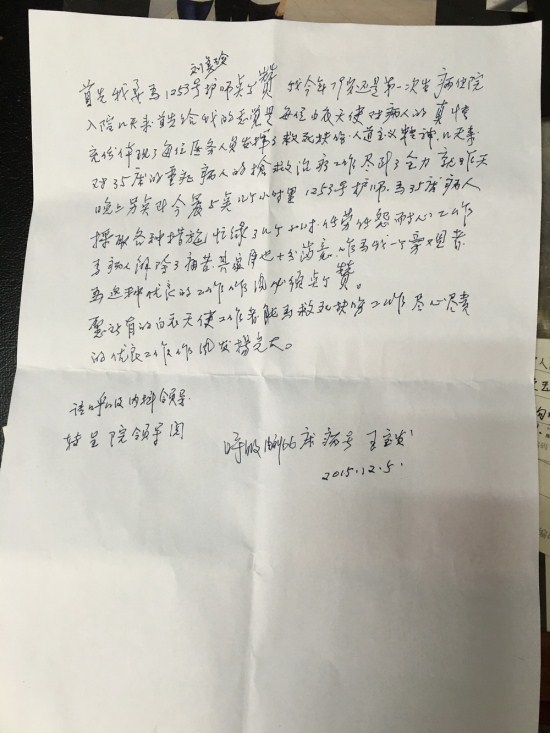 首先我要为1253号护师点个赞 我今年79岁还是第一次生病住院
入院以来首先给我的感觉是每位白衣天使对病人的真情
充份体现了每位医务人员发挥了救死扶伤、人道主义精神。以来
对35床的重症病人的抢救治疗工作尽到了全力 就昨天
晚上 点到今晨5点 个小时里1253号护师为35床病人
採取各种措施 忙绿了 个小时.任劳任怨 工作
为病人解除了痛苦 家属也十分满意.作为我一个 患者
为这种优良的工作作风必须点个赞。
愿所有的白衣天使工作者能为救死扶伤工作尽心尽责
的优良工作作风发扬光大。
请呼吸内科领导
转呈院领导阅
呼吸内科66床病号 王
2015.12.5.